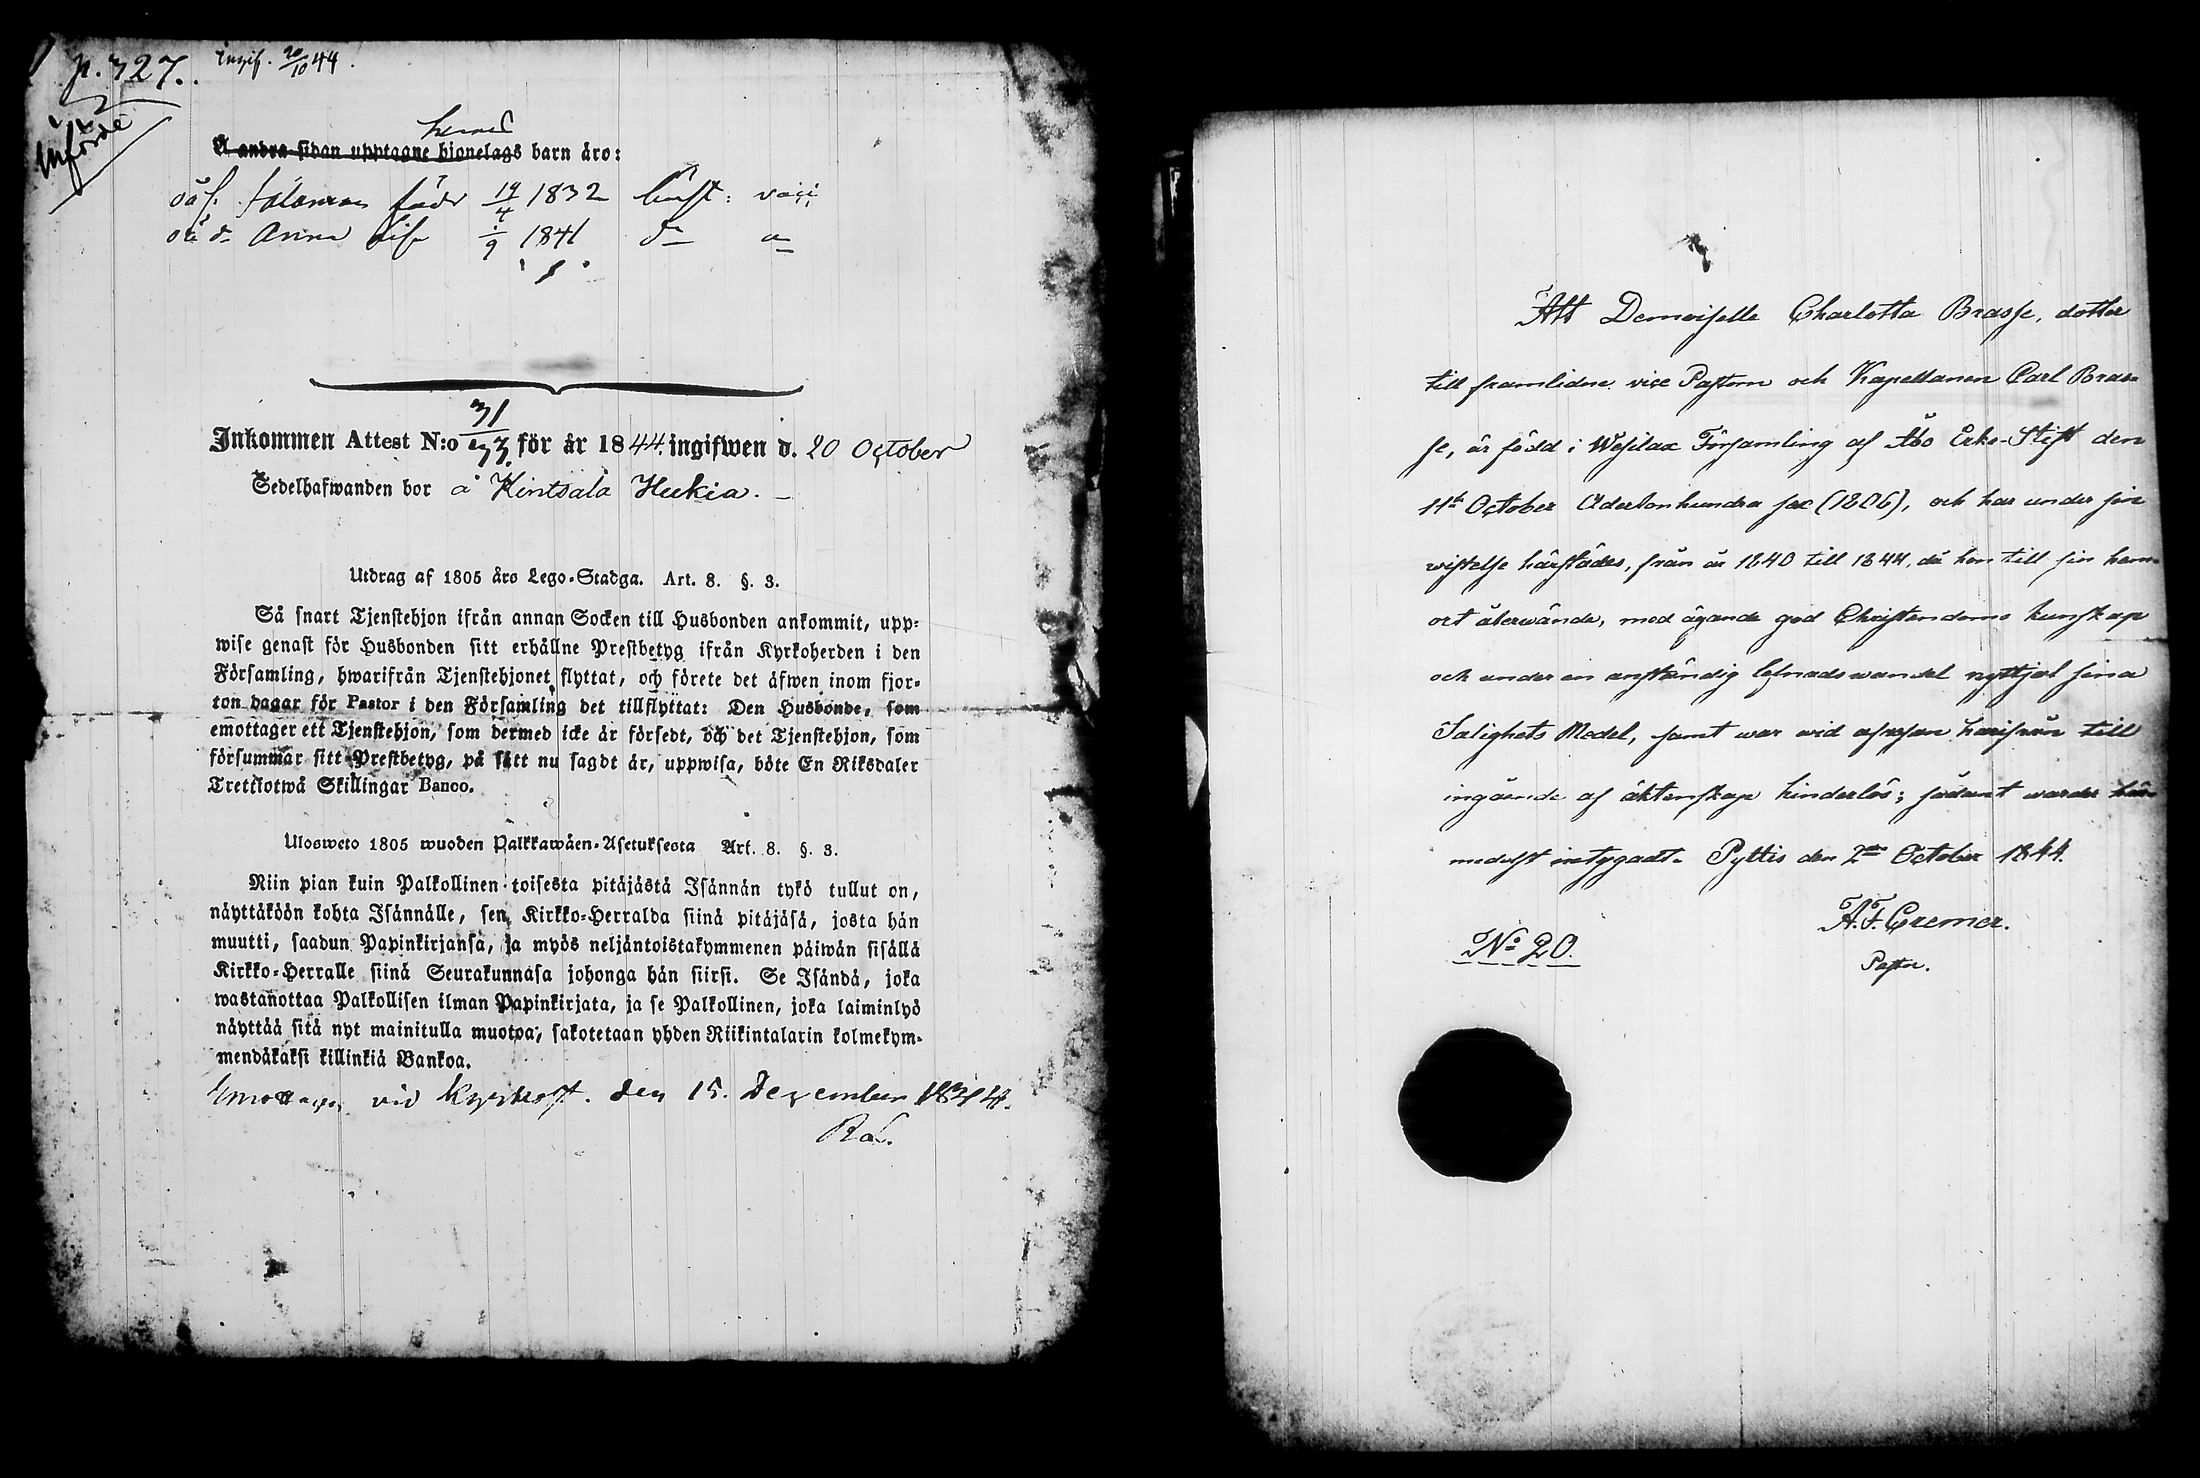 p. 327.
Ingif. 20/10 44.
införde
hennes
Å andra sidan upptagne hjonelags barn äro:
född 19/4 1832
Anna Lisa 1/9 1841
Inkommen Attest N:o 31/ för år 1844. ingifwen d. 20 October
Sedelhafwanden bor å Kintsala Huckia. –
Utdrag af 1805 års Lego-Stadga. Art. 8. §. 3.
Så snart Tjenstehjon ifrån annan Socken till Husbonden ankommit, upp-
wise genast för Husbonden sitt erhållne Prestbetyg ifrån Kyrkoherden i den
Församling, hwarifrån Tjenstehjonet flyttat, och förete det äfwen inom fjor-
ton dagar för Pastor i den Församling det tillflyttat: Den Husbonde, som
emottager ett Tjenstehjon, som dermed icke är försedt, och det Tjenstehjon, som
försummar sitt Prestbetyg, på sätt nu sagdt är, uppwisa, böte En Riksdaler
Trettiotwå Skillingar Banco.
Ulosweto 1805 wuoden Palkkawäen-Asetuksesta Art. 8. §. 3.
Niin pian kuin Palkollinen toisesta pitäjästä Isännän tykö tullut on,
näyttäköön kohta Isännälle, sen Kirkko-Herralda siinä pitäjäsä, josta hän
muutti, saadun Papinkirjansa, ja myös neljäntoistakymmenen päiwän sisällä
Kirkko-Herralle siinä Seurakunnasa johonga hän siirsi. Se Isändä, joka
wastanottaa Palkollisen ilman Papinkirjata, ja se Palkollinen, joka laiminlyö
näyttää sitä nyt mainitulla muotoa, sakotetaan yhden Riikintalarin kolmekym-
mendäkaksi killinkiä Bankoa.
vid den 15. December
Att Demoiselle Charlotta Brasse, dotter
till framlidne vice Pastorn och Kapellanen Carl Bras-
se, är född i Wesilax Församling af Åbo Erke-Stift den
11te October Adertonhundra sex (1806), och har under sin
wistelse härstädes, från år 1840 till 1844, då hon till sin hem-
ort återwände, med ägande god Christendoms kunskap
och under en anständig lefnadswandel nyttjat sina
Salighets Medel, samt war wid afresan härifrån till
ingående af äktenskap hinderlös; sådant warder här-
medelst intygadt. Pyttis den 2dra October 1844.
A. F. Cremer.
Pastor.
No 20.